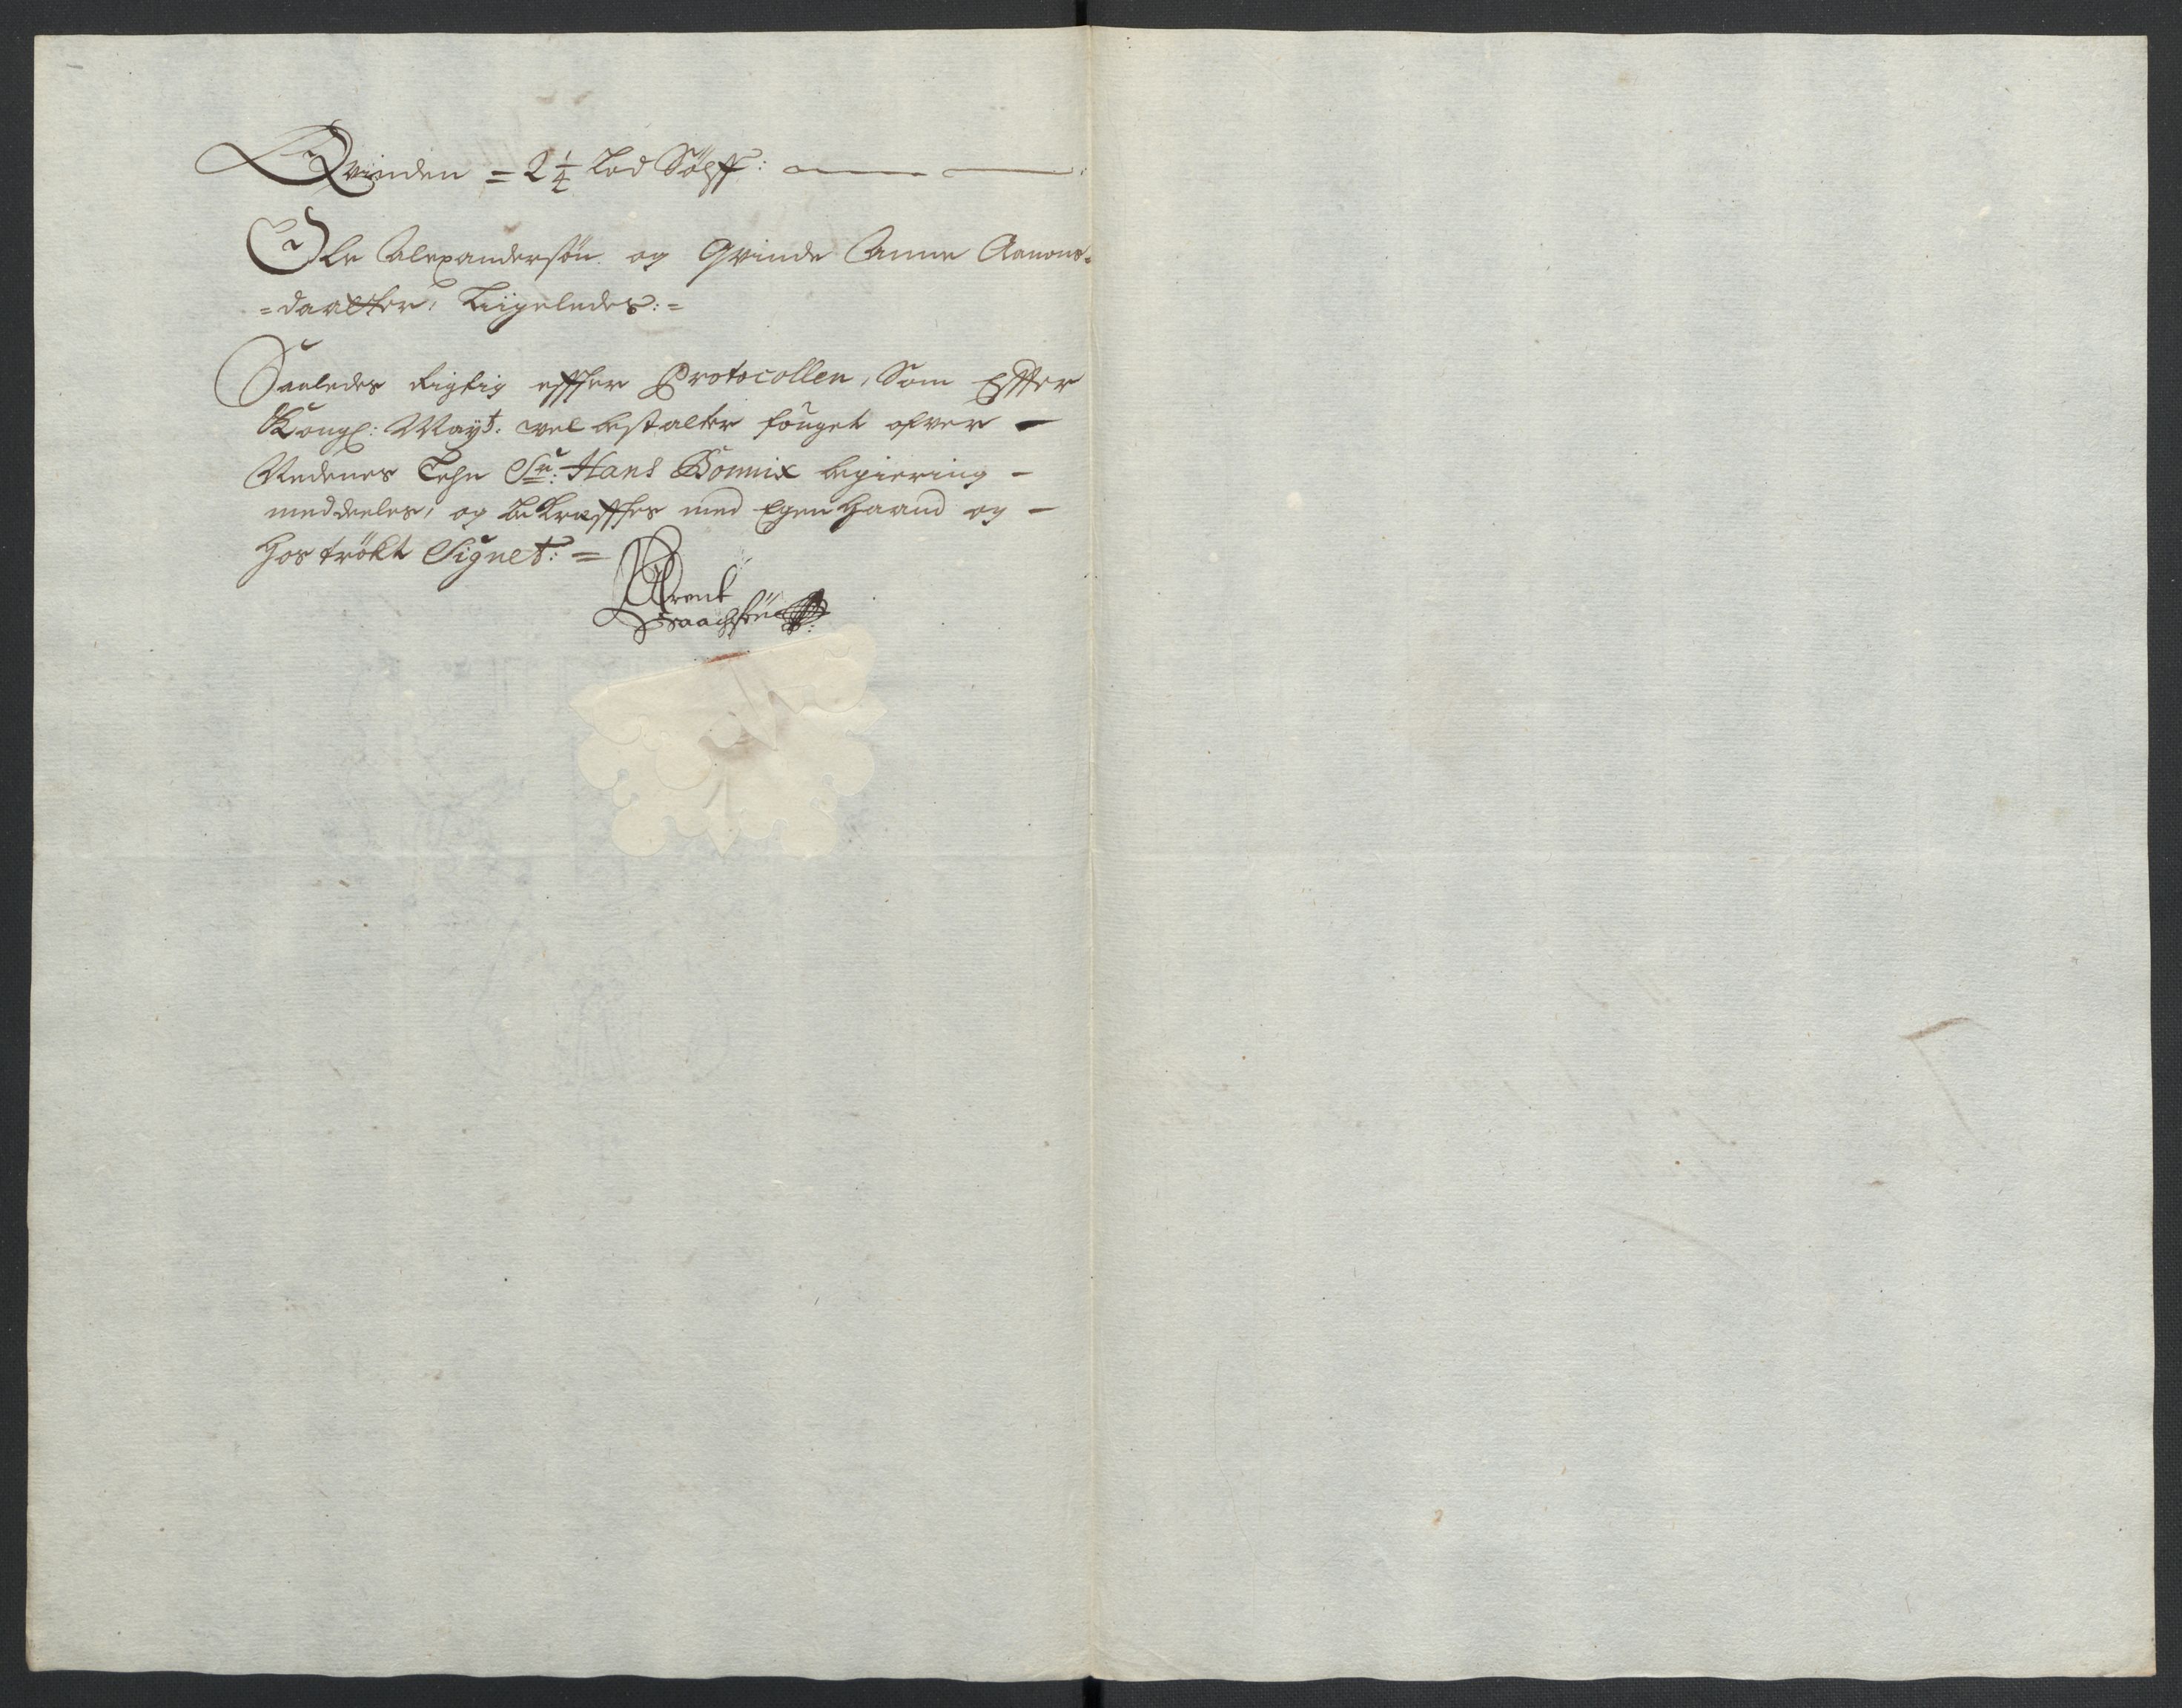 Qvinden = 2 1/4 Lod Sølff:
Ole Alexandersøn og Qvinde Anne Aanons-
=daatter, Liigeledes:=
Saaledes rigtig effter Protocollen, Som Effter
Kongl: Mayt: vel bestalter fouget ofver -
Nedenes Lehn Sr: Hans Bonnix begiering -
meddeeles, og bekrefftes med Egen Haand og -
Hoströkt Signet: =
Arent
Isaachsøn